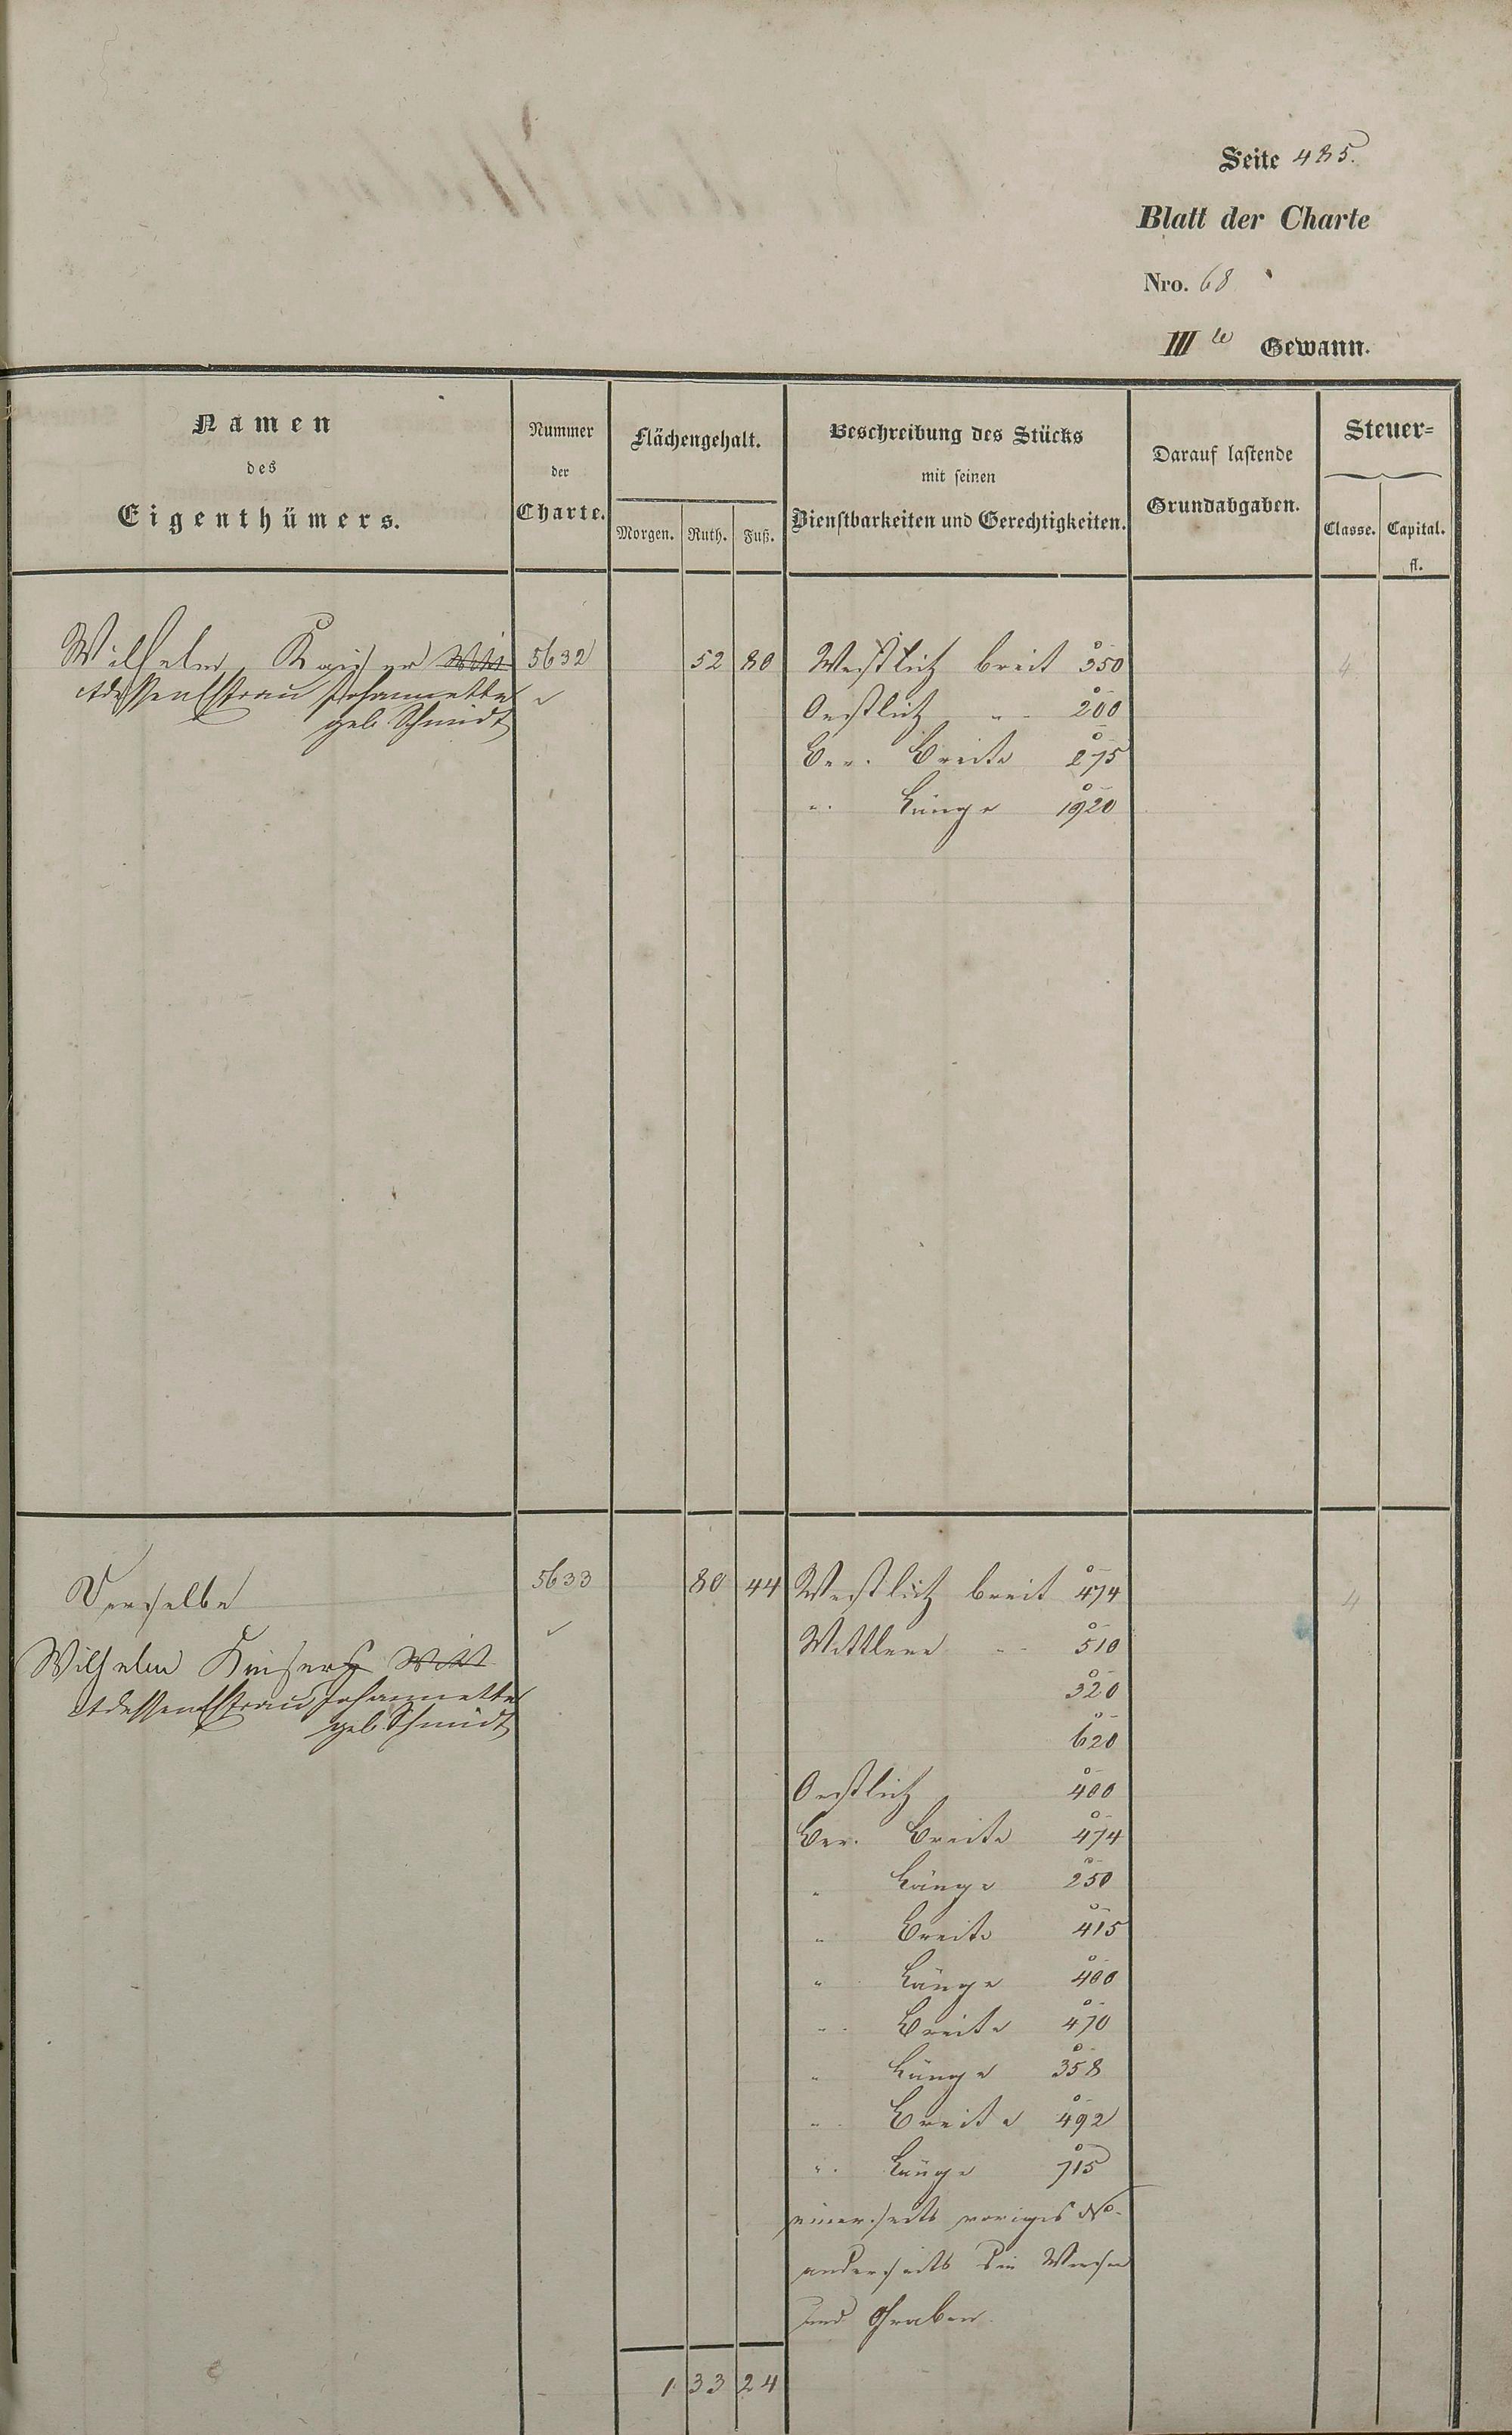 Seite 485.
Blatt der Charte
Nro. 68
III te Gewann.
Namen
des
Eigenthümers.
Nummer
der
Charte.
Flächengehalt.
Morgen. Ruth. Fuß.
Beschreibung des Stücks
mit seinen
Dienstbarkeiten und Gerechtigkeiten.
Darauf lastende
Grundabgaben.
Steuer-
Classe. Capital.
fl.
Wilhelm Kaiser 5632 52 80 Westlich breit 350 4
Ehefrau Johannette Oestlich " 200
geb. Schmidt
Ber. Breite 275
" Länge 1920
Derselbe 5633 80 44 Westlich breit 474 4
Wilhelm Kaiser Mittlere " 510
Ehefrau Johannette 320
geb. Schmidt 620
Oestlich 400
Ber. Breite 474
" Länge 250
" Breite 415
" Länge 400
" Breite 470
" Länge 358
" Breite 492
" Länge 715
einerseits voriges No.
anderseits die
und Graben
1 33 24